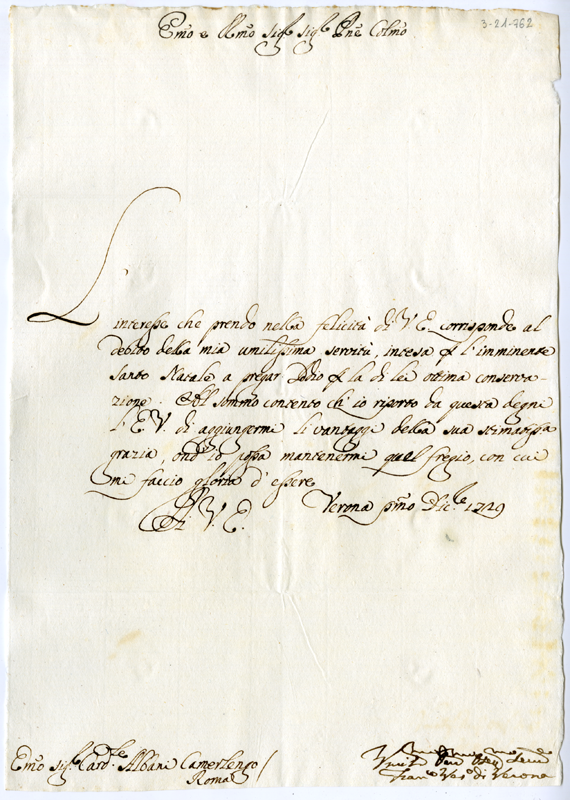 3-21-762
Emo e Rmo Sigr Sigr Pne Colmo
L'
interesse che prendo nella felicità di V. E. corrisponde al
debito della mia umilissima servitù, intesa p l'imminente
Santo Natale a pregar Iddio p la di lei ottima conserva-
zione. Al sommo contento ch' io riporto da questa degni
l' E. V. di aggiungermi li vantaggi della sua stimatissa
grazia, ond' io possa mantenermi quel fregio, con cui
mi faccio gloria d' essere
Di V. E. Verona pmo Dicre 1729
Emo Sigr Cardle Albani Camerlengo
Roma
Franco Veso di Verona